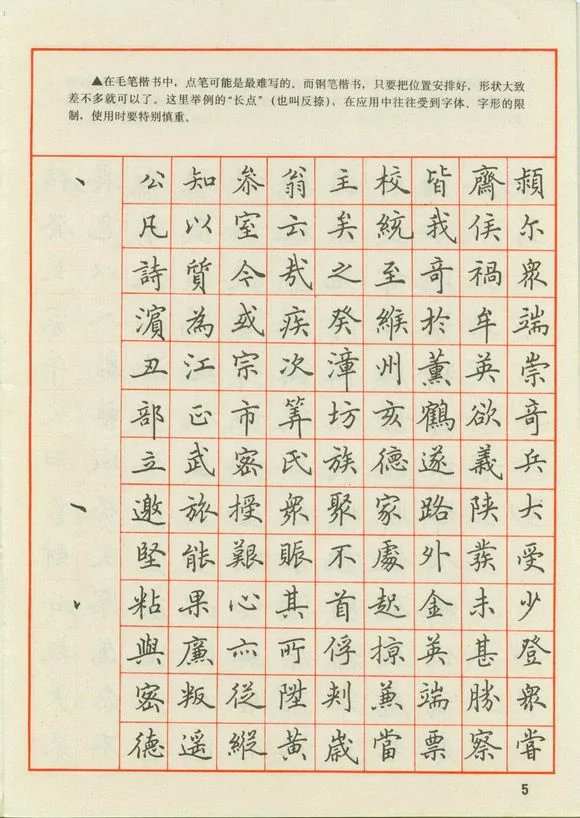 ▲在毛笔楷书中，点笔可能是最难写的。而钢笔楷书，只要把位置安排好，形状大致
差不多就可以了。这里举例的“长点”（也叫反捺），在应用中往往受到字体、字形的限
制，使用时要特别慎重。
公知参翁主校皆齊頮
凡以室云矣統我侯尔
詩質今哉之至奇禍衆
濱為或疾癸緱於牟端
丑江宗次漳州薰英崇
部正市筭坊亥鶴欲奇
立武密氏族德遂義兵
邀旅授衆聚家路陕大
堅能艱賑不處外蕟受
粘果心其首起金未少
與廉亦所俘掠英甚登
密叛從陞刾兼端勝衆
德遥縱黄歲當票察嘗
5